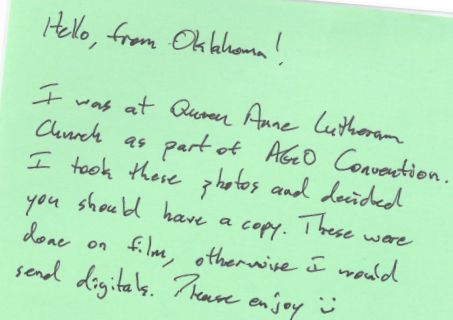 Hello, from Oklahoma!
I was at Queen Anne Lutheran
Church as part of AGO Convention.
I took these photos and decided
you should have a copy. These were
done on film, otherwise I would
send digitals. Please enjoy :)